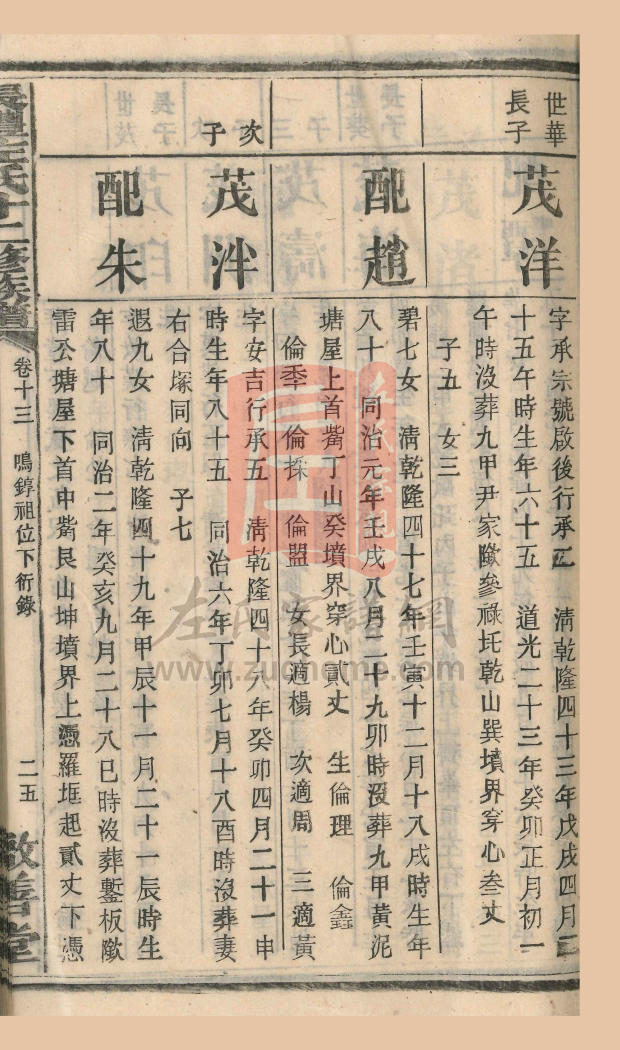 世華
長子
茂洋
字承宗號啟後行承 清乾隆四十三年戊戌四月
十五午時生年六十五 道光二十三年癸卯正月初一
午時沒葬九甲尹家 參祿 乾山巽墳界穿心叁丈
子五 女三
配趙
碧七女 清乾隆四十七年壬寅十二月十八戌時生年
八十 同治元年壬戌八月二十九卯時沒葬九甲黃泥
塘屋上首嘴丁山癸墳界穿心貳丈 生倫理 倫鑫
倫秊 倫採 倫盟 女長適楊 次適周 三適黃
次子
茂泮
字安吉行承五 清乾隆四十八年癸卯四月二十一申
時生年八十五 同治六年丁卯七月十八酉時沒葬妻
右合塚同向 子七
配朱
遐九女 清乾隆四十九年甲辰十一月二十一辰時生
年八十 同治二年癸亥九月二十八巳時沒葬鏨板
雷公塘屋下首中嘴艮山坤墳界上憑羅堀起貳丈下憑
左氏十二修族譜
卷十三 鳴錞祖位下衍錄
二五
敦善堂
左氏家譜網
www.zuohome.com